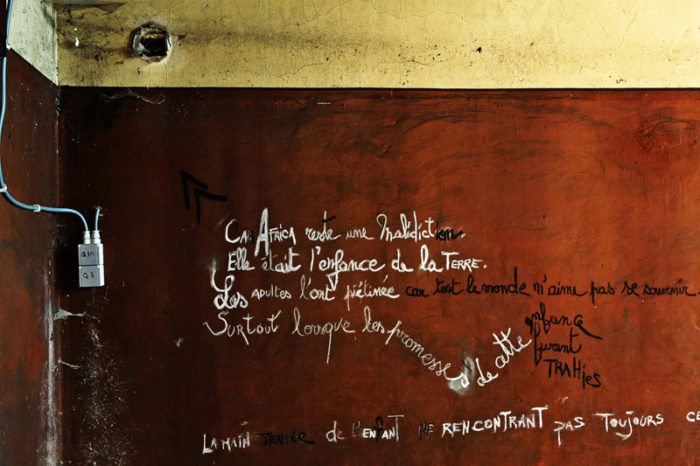 Car AFRICA reste une malédiction.
Elle était l'enfance de la TERRE.
Les ADULTES l'ont piétinée car tout le monde n'aime pas se souvenir.
Surtout lorsque les promesses de cette enfance
furent
TRAHies
LA MAIN TENDUE de l'enfANT NE RENCONTRANT pas TOUJOURS CE